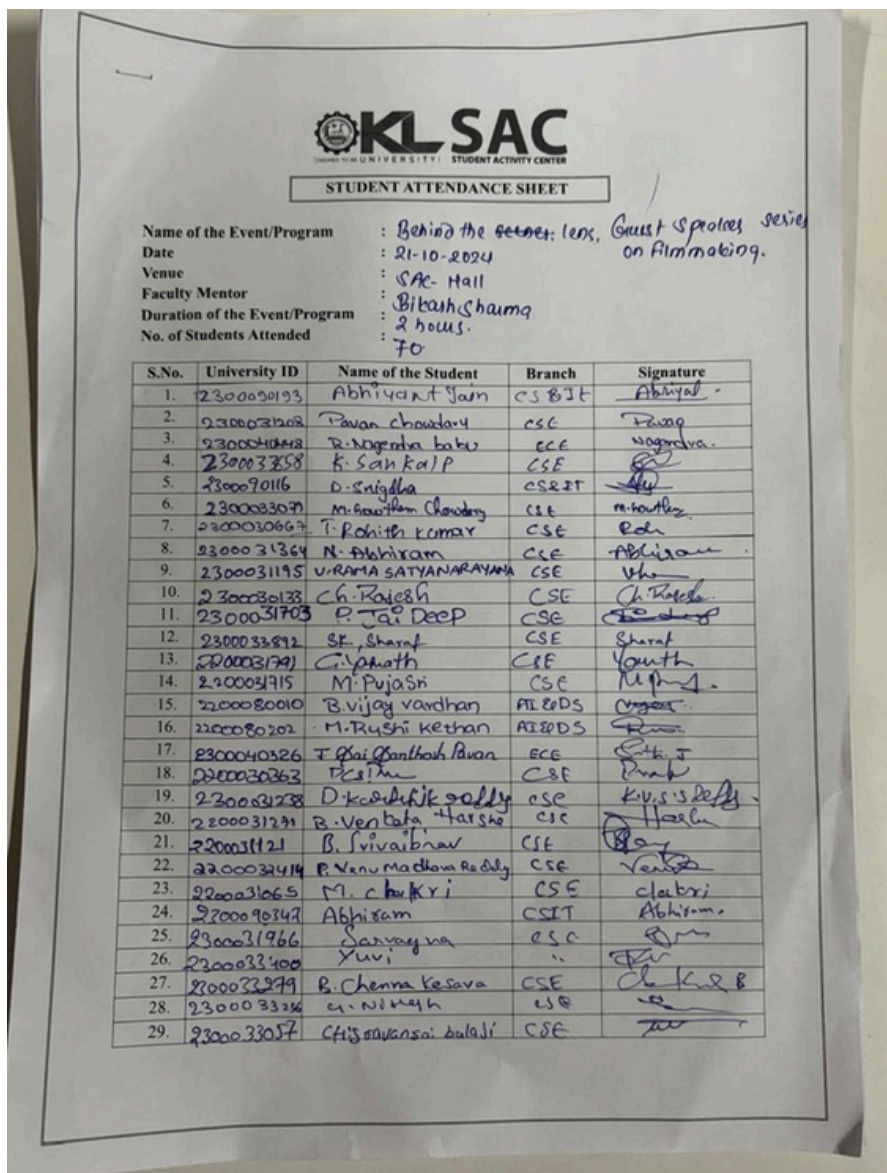 KL SAC
(DEEMED TO BE UNIVERSITY) STUDENT ACTIVITY CENTER
STUDENT ATTENDANCE SHEET
Name of the Event/Program : Behind the lens, Guest Speaker series
on filmmaking.
Date : 21-10-2024
Venue : SAC- Hall
Faculty Mentor : Bikash Sharma
Duration of the Event/Program : 2 hours.
No. of Students Attended : 70
S.No. University ID Name of the Student Branch Signature
1. 2300090193 Abhiyant Jain CS&It Abhiyal.
2. 2300031208 Pavan chowdary CSE Pavan
3. R. Nagendra babu ECE Nagendra.
4. 2300033658 K. Sankalp CSE
5. 2300090116 D. Snigdha CS&IT
6. 2300033071 M. Gowtham Chowdary CSE M. Gowtham
7. 2300030667 T. Rohith Kumar CSE Roh
8. 2300031364 N. Abhiram CSE Abhiram
9. 2300031195 V. RAMA SATYANARAYANA CSE
10. 2300030133 Ch. Rajesh CSE Ch. Rajesh
11. 2300031703 P. Jai Deep CSE
12. 2300033892 SK, Sharaf CSE Sharaf
13. 2200031791 CSE
14. 2200031715 M. PujaSri CSE
15. 2200080010 B. vijay vardhan AI&DS
16. 2200080202 M. Rushi Kethan AI&DS
17. 2300040326 J Sai Santhosh Pavan ECE
18. 2200030363 CSE
19. 2300031238 D. Karthik reddy CSE K.V.S.S Reddy.
20. 2200031271 B. Venkata Harsha CSE Harsha
21. 2200031121 B. Srivaibhav CSE
22. 2200032414 P. Venu Madhava Reddy CSE Venu
23. 2200031065 M. chakri CSE chakri
24. 2200090347 Abhiram CSIT Abhiram.
25. 2300031966 Sarvagna CSE
26. 2300033400 Yuvi "
27. 2300033279 B. Chenna Kesava CSE
28. 2300033236 CSE
29. 2300033057 CSE